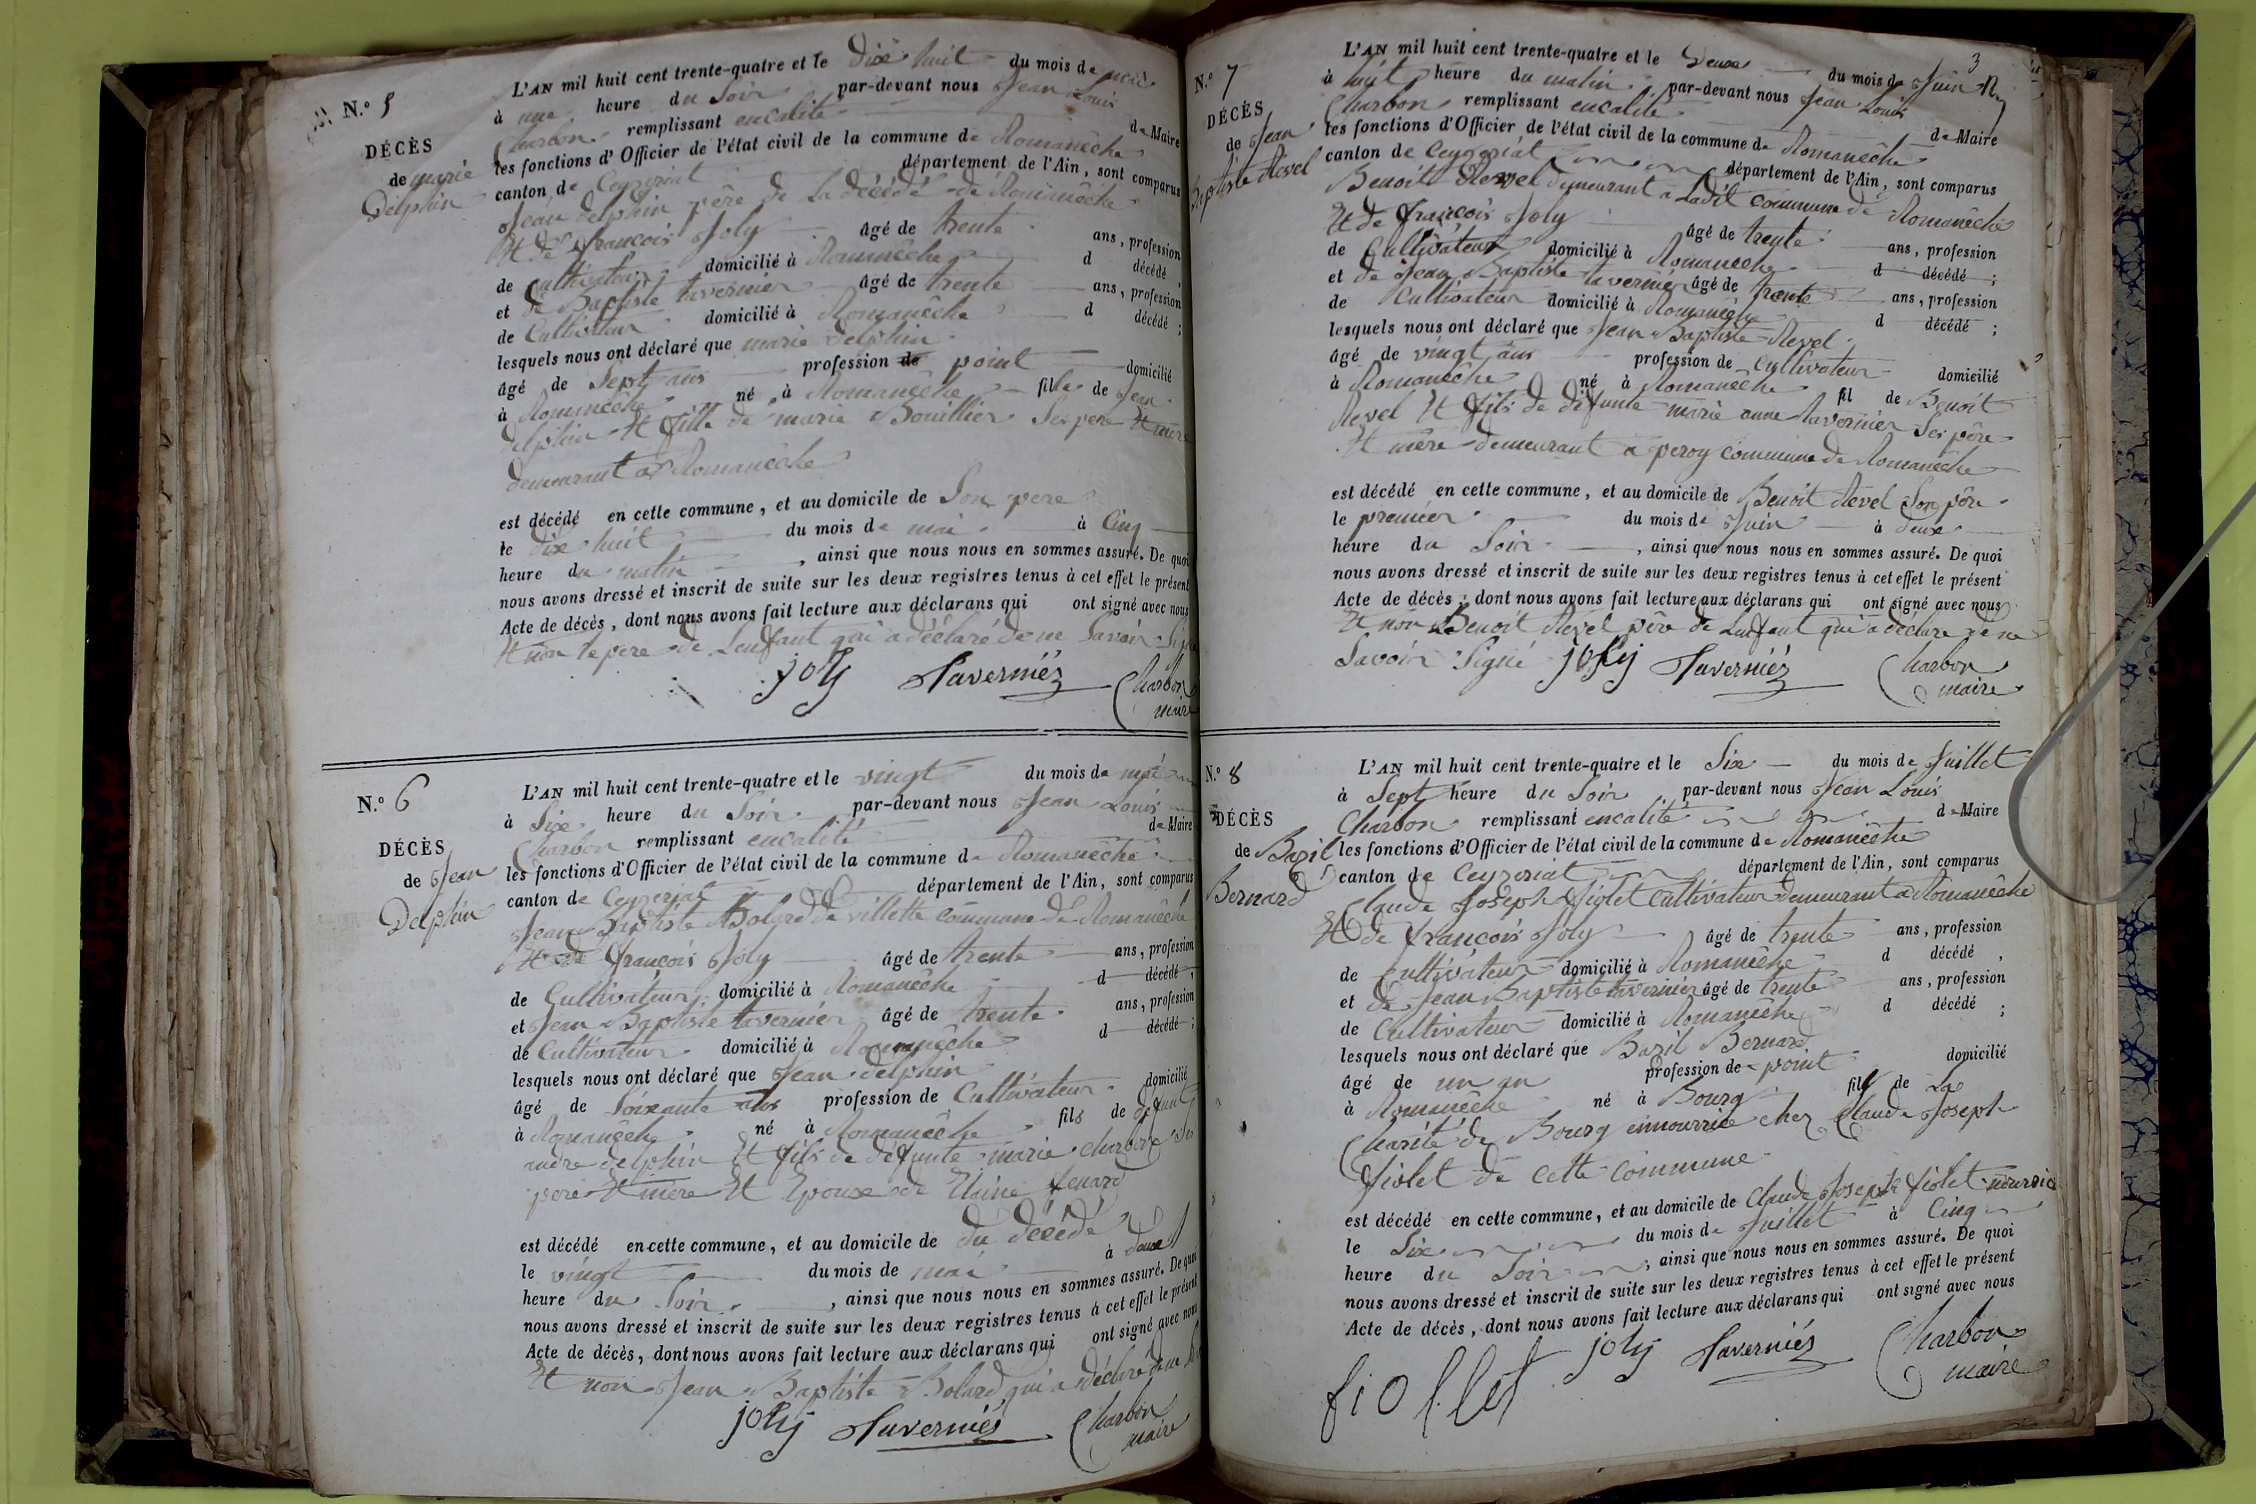 N.º 5
DÉCÈS
de marie
Delphin
L'AN mil huit cent trente-quatre et le dixe huit du mois de mai
à une heure du Soir par-devant nous Jean Louis
Charbon remplissant encalité de Maire
les fonctions d'Officier de l'état civil de la commune de Romanêche
canton de Ceyzeriat département de l'Ain, sont comparus
Jean delphin père de La décédé de Romanêche
Et de françois Joly âgé de trente ans, profession
de Cultivateur domicilié à Romanêche d décédé,
et de Baptiste tavernier âgé de trente ans, profession
de Cultivateur domicilié à Romanêche d décédé;
lesquels nous ont déclaré que marie delphin
âgé de Sept ans profession de point domicilié
à Romanêche né à Romanêche fille de Jean
delphin Et fille de marie Bouillier Ses pere Et mère
demeurant à Romanêche
est décédé en cette commune, et au domicile de Son pere
le dixe huit du mois de mai à Cinq
heure du matin, ainsi que nous nous en sommes assuré. De quoi
nous avons dressé et inscrit de suite sur les deux registres tenus à cet effet le présent
Acte de décès, dont nous avons fait lecture aux déclarans qui ont signé avec nous
Et non le pere de Lenfant qui a déclaré de ne Savoir Signé
joly Taverniéz Charbon
maire
N.º 6
DÉCÈS
de Jean
Delphin
L'AN mil huit cent trente-quatre et le vingt du mois de mai
à Six heure du Soir par-devant nous Jean Louis
Charbon remplissant encalité de Maire
les fonctions d'Officier de l'état civil de la commune de Romanêche
canton de Ceyzeriat département de l'Ain, sont comparus
Jean Baptiste Bolard de villette commune de Romanêche
Et de françois Joly âgé de trente ans, profession
de Cultivateur domicilié à Romanêche d décédé,
et Jean Baptiste tavernier âgé de trente ans, profession
de Cultivateur domicilié à Romanêche d décédé;
lesquels nous ont déclaré que Jean delphin
âgé de Soixante ans profession de Cultivateur domicilié
à Romanêche né à Romanêche fils de defunt
andre delphin Et fils de défunte marie charbon Ses
pere Et mère Et Epoux de Elaine fenard
est décédé en cette commune, et au domicile de du décédé
le vingt du mois de mai à deux
heure du Soir, ainsi que nous nous en sommes assuré. De quoi
nous avons dressé et inscrit de suite sur les deux registres tenus à cet effet le présent
Acte de décès, dont nous avons fait lecture aux déclarans qui ont signé avec nous
Et non Jean Baptiste Bolard qui a déclaré de ne
joly Taverniéz Charbon
maire
3
N.º 7
DÉCÈS
de Jean
Baptiste Revel
L'AN mil huit cent trente-quatre et le Deuxe du mois de Juin
à huit heure du matin par-devant nous Jean Louis
Charbon remplissant encalité de Maire
les fonctions d'Officier de l'état civil de la commune de Romanêche
canton de Ceyzeriat département de l'Ain, sont comparus
Benoit Revel demeurant a Ladit commune de Romanêche
Et de françois Joly âgé de trente ans, profession
de Cultivateur domicilié à Romanêche d décédé;
et de Jean Baptiste tavernier âgé de trente ans, profession
de Cultivateur domicilié à Romanêche d décédé;
lesquels nous ont déclaré que Jean Baptiste Revel
âgé de vingt ans profession de cultivateur domicilié
à Romanêche né à Romanêche fil de Benoit
Revel Et fils de difunte marie anne tavernier Ses père
Et mère demeurant a peroy commune de Romanêche
est décédé en cette commune, et au domicile de Benoit Revel Son père
le premier du mois de Juin à deuxe
heure du Soir, ainsi que nous nous en sommes assuré. De quoi
nous avons dressé et inscrit de suite sur les deux registres tenus à cet effet le présent
Acte de décès; dont nous avons fait lecture aux déclarans qui ont signé avec nous
Et non Benoit Revel père de Lenfant qui a déclare de ne
Savoir Signé joly Taverniéz Charbon
maire
N.º 8
DÉCÈS
de Bazil
Bernard
L'AN mil huit cent trente-quatre et le Six du mois de Juillet
à Sept heure du Soir par-devant nous Jean Louis
Charbon remplissant encalité de Maire
les fonctions d'Officier de l'état civil de la commune de Romanêche
canton de Ceyzeriat département de l'Ain, sont comparus
Claude Joseph fiolet Cultivateur demeurant a Romanêche
Et de françois Joly âgé de trente ans, profession
de Cultivateur domicilié à Romanêche d décédé,
et de Jean Baptiste tavernier âgé de trente ans, profession
de Cultivateur domicilié à Romanêche d décédé;
lesquels nous ont déclaré que Bazil Bernard
âgé de un an profession de point domicilié
à Romanêche né à Bourg fils de La
Charité de Bourg ennourrice chez Claude Joseph
fiolet de cette commune
est décédé en cette commune, et au domicile de Claude Joseph fiolet nourrice
le Six du mois de Juillet à Cinq
heure du Soir; ainsi que nous nous en sommes assuré. De quoi
nous avons dressé et inscrit de suite sur les deux registres tenus à cet effet le présent
Acte de décès, dont nous avons fait lecture aux déclarans qui ont signé avec nous
fiollet joly Taverniéz Charbon
maire